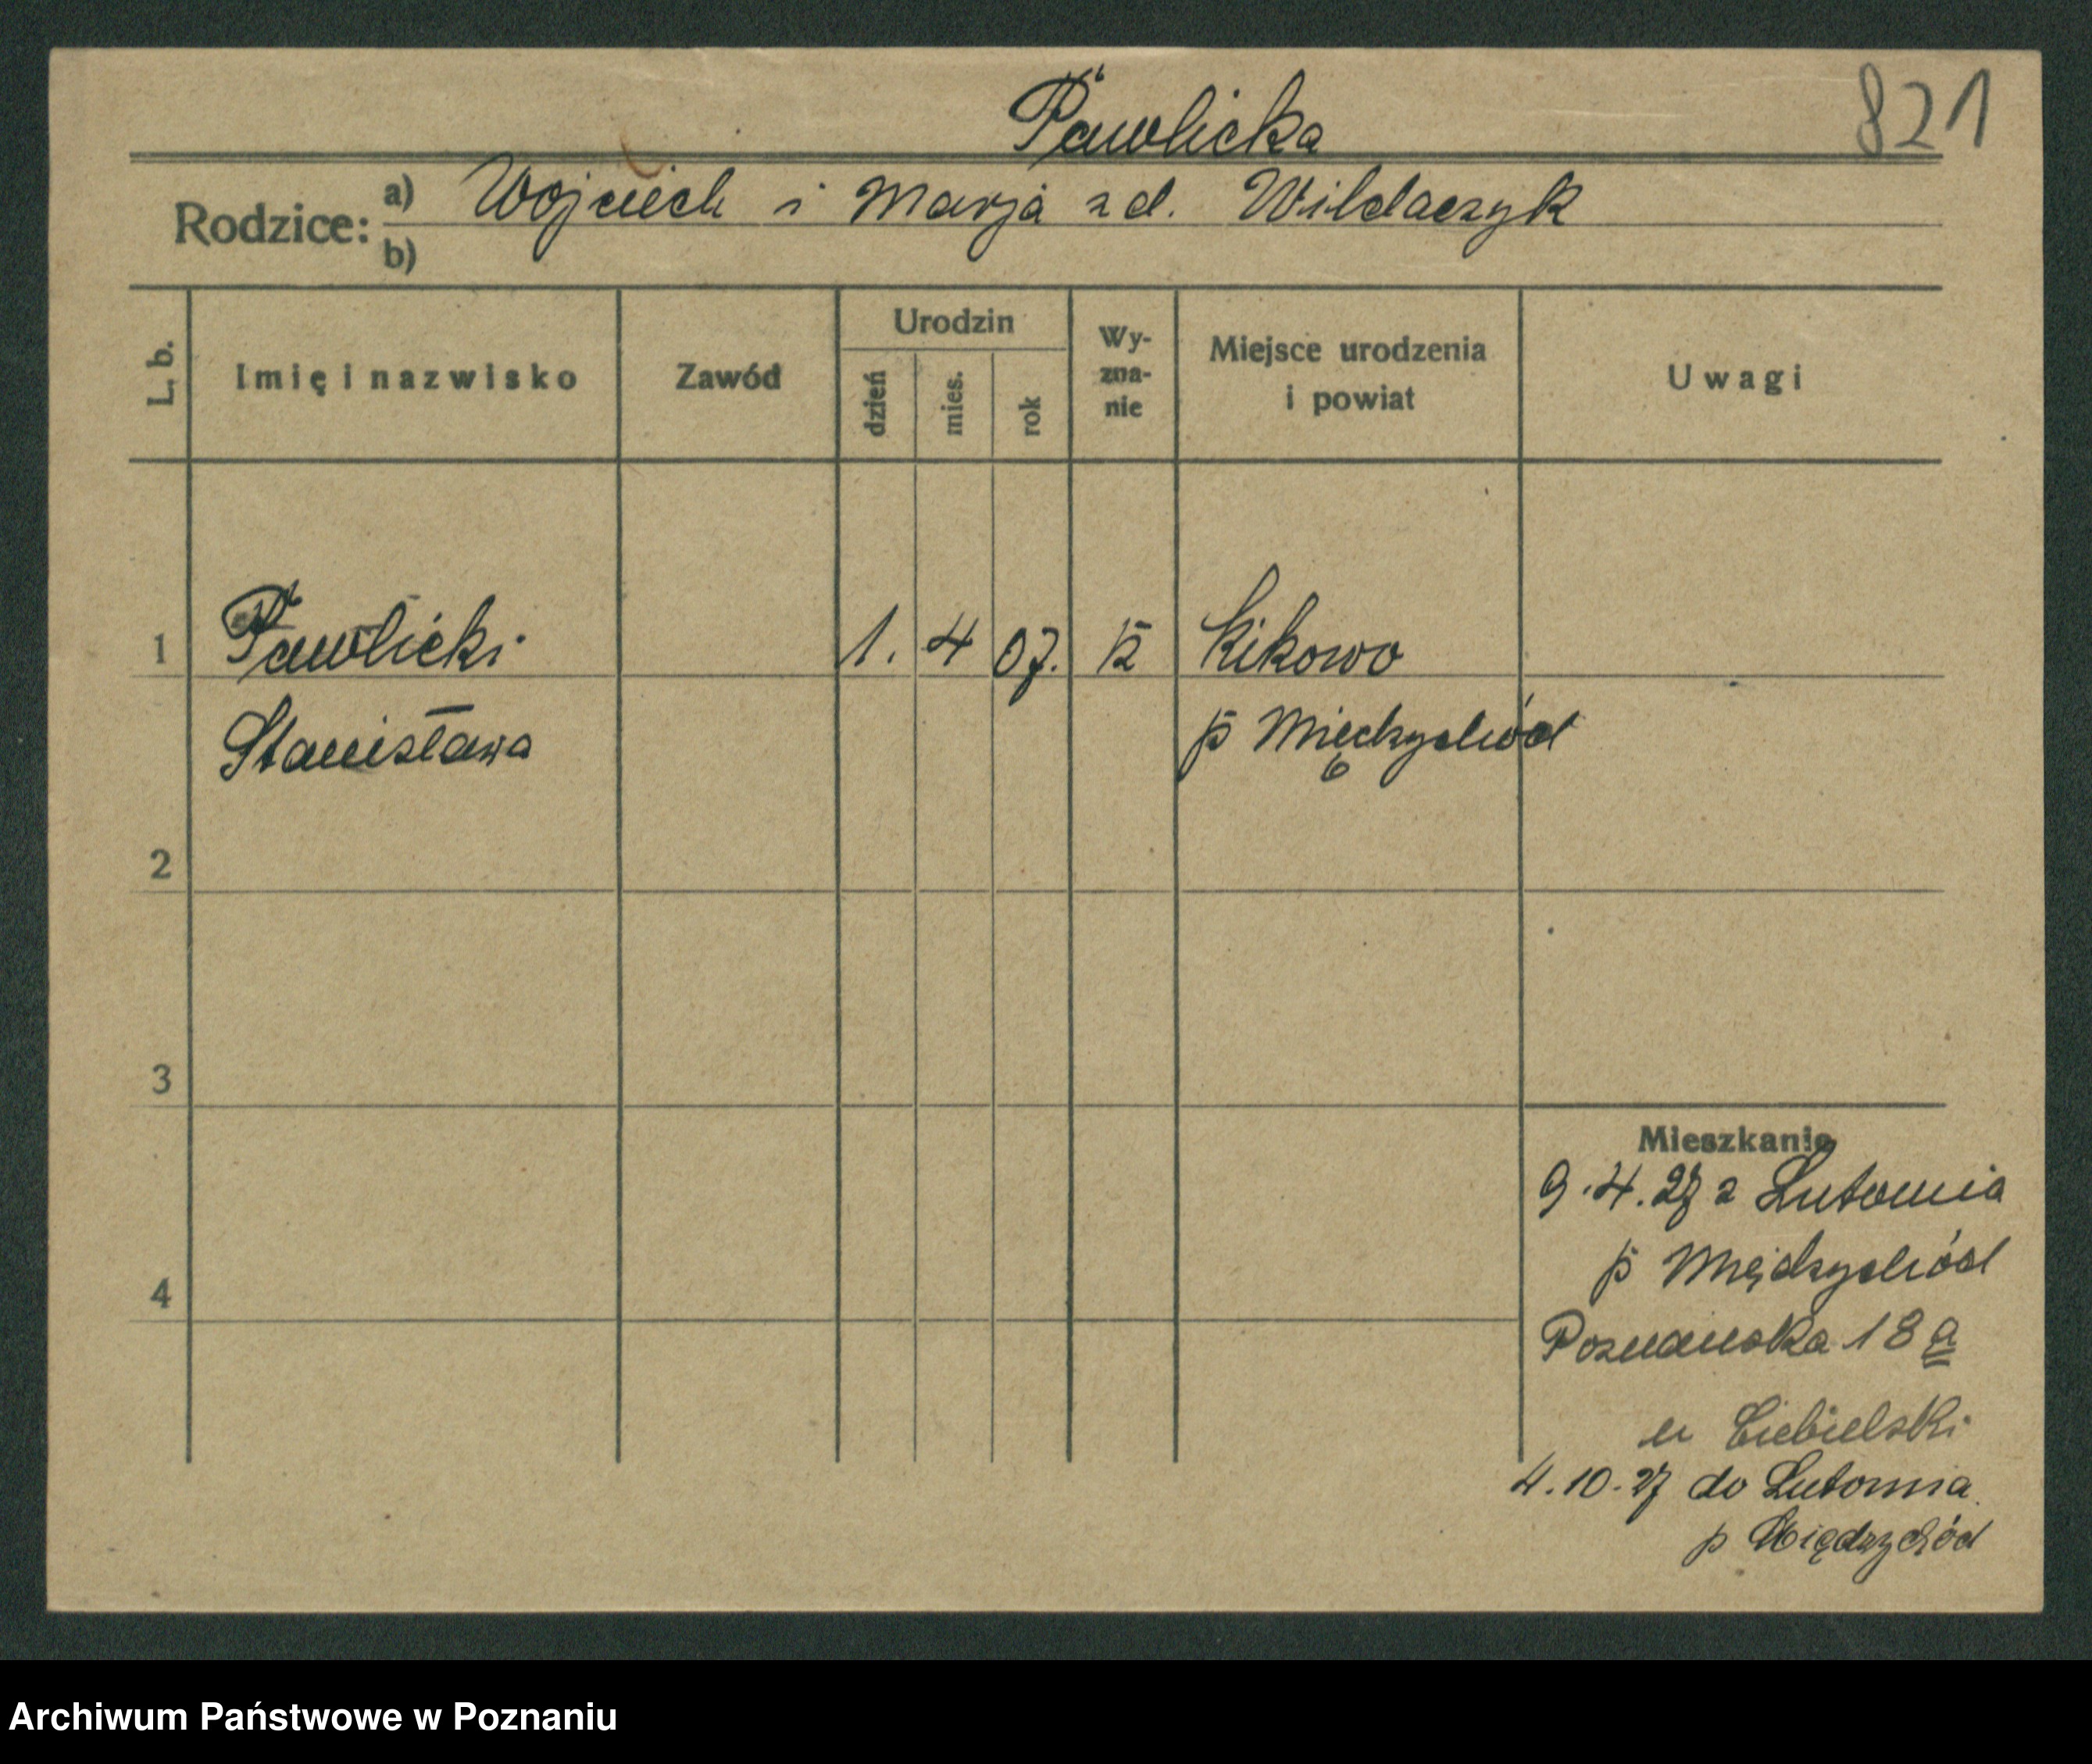 Pawlicka
821
Rodzice: a) Wojciech i Marja z d. Wildaczyk
b)
L. b.
Imię i nazwisko
Zawód
Urodzin
dzień
mies.
rok
Wy-
zna-
nie
Miejsce urodzenia
i powiat
Uwagi
1 Pawlicki 1. 4 07. K Kikowo
Stanisława p Międzychód
2
3
Mieszkanie
9.4.27 z Lutomia
p Międzychód
4
Poznańska 18 a
u Ciebielski
4.10.27 do Lutomia
p Międzychód
Archiwum Państwowe w Poznaniu